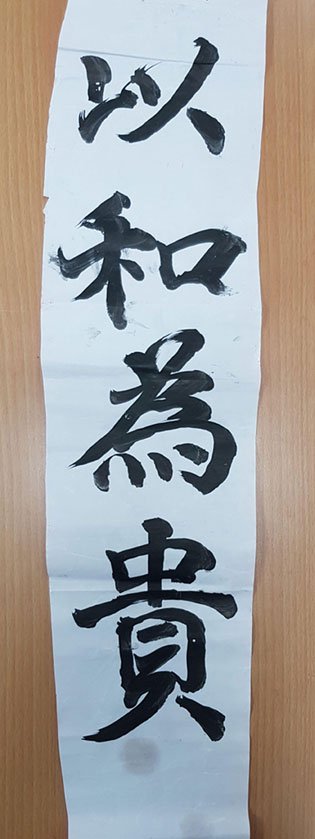 以和為貴